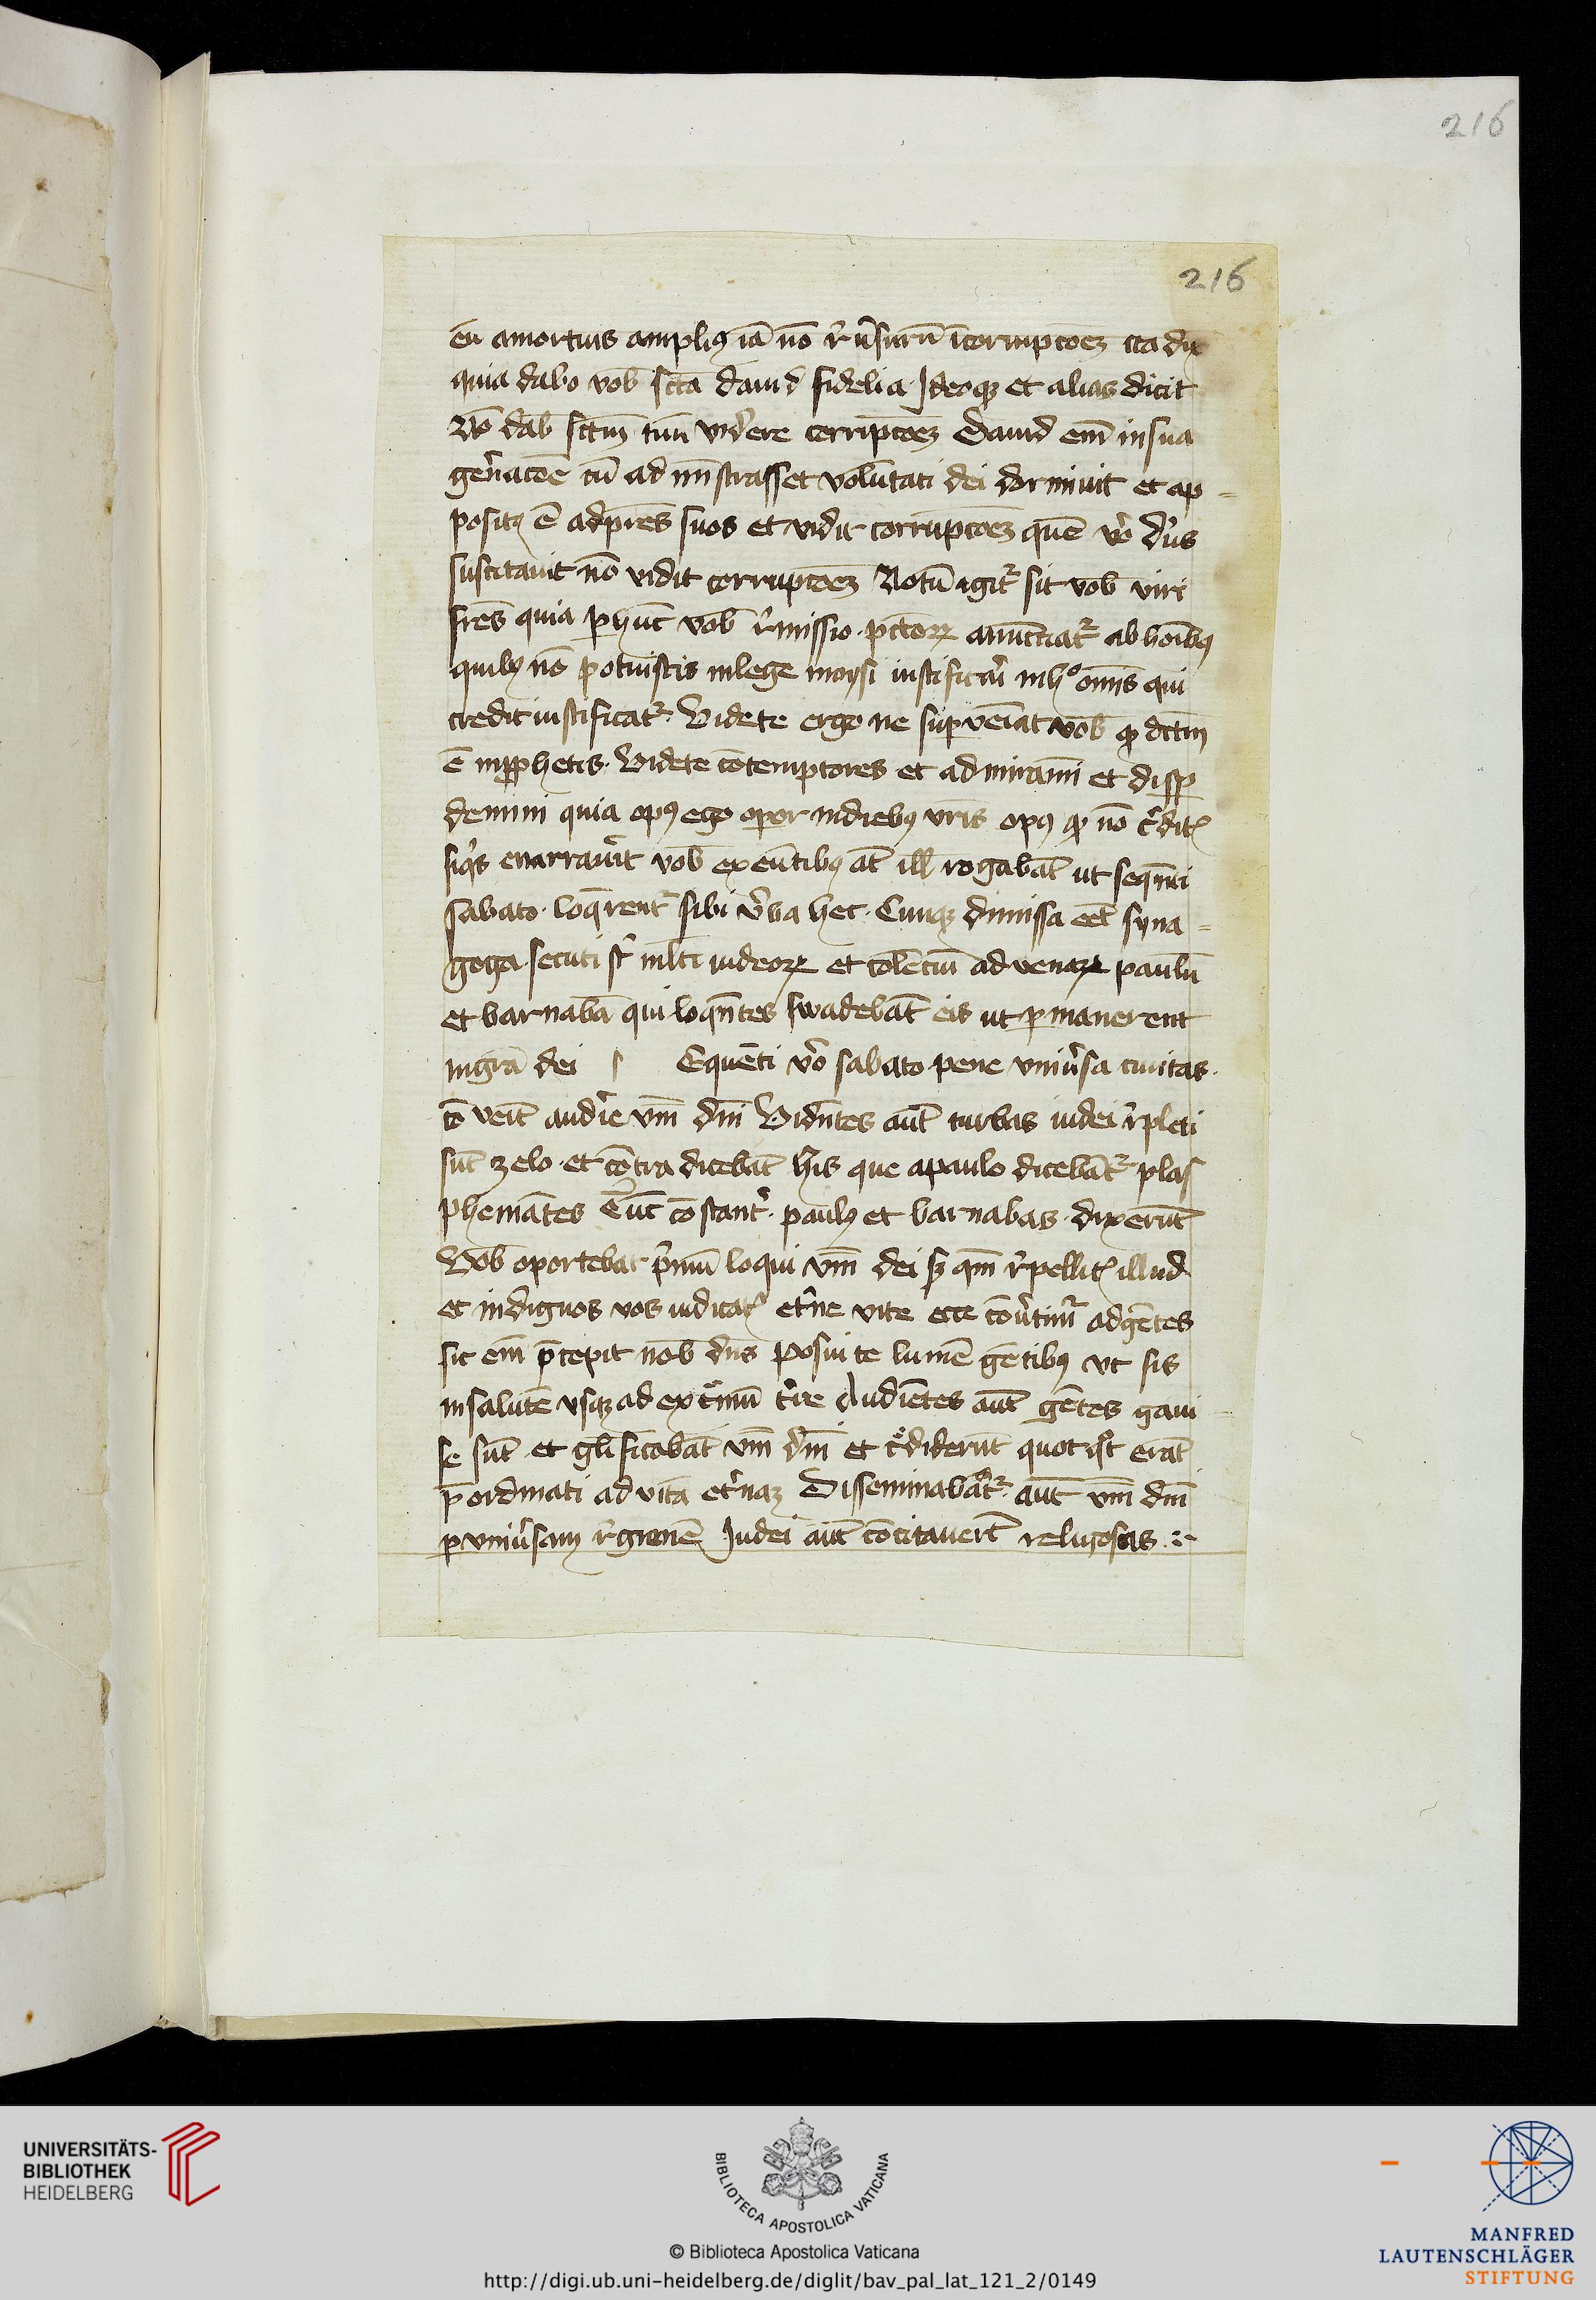 216
216
eū amortuis ampliꝯ iā nō r̓ūsurū ı̄corrupc̄oeꝫ ita dix
quia dabo vob̄ sc̄tā dauid fidelia Ideoqꝫ et alias dicit
Nō dab̄ sc̄tm̄ tuū vid̓ere corrupc̄oeꝫ Dauid em̄ in sua
gen̓ac̄oē cū ad mı̄strasset volūtati dei dormiuit et ap=
positꝯ ē ad pr̄es suos et vidit corrupc̄oeꝫ quē v̓o dn̄s
suscitauit nō vidit corrupc̄oeꝫ Notū igit᷑ sit vob̄ viri
fr̄es quia ꝑ hūc vob̄ r̓missio pc̄torꝝ anūctiat᷑ ab hoı̄bꝯ
quibꝯ nō potuistis in lege moysi iustificari in hͦ om̄s qui
credit iustificat᷑ Videte ergo ne suꝑ veı̄at vob̄ qͩ dc̄tm̄
ē in ꝓphetis Videte cōtemptores et ad miramı̄ et disꝑ
demini quia opꝯ ego oꝑor in diebꝯ vr̄is opꝯ qͩ nō c̓ditꝭ
siqͥs enarrau̓it vob̄ exeūtibꝯ at̄ ill̄ rogabāt ut seqn̄ti
sabato loq̄rent᷑ sibi v̓ba hec Cunqꝫ dimissa eēt syna=
goga secuti st̓ ml̄ti iudeorꝝ et colēciū ad venarꝝ paulū
et barnabā qui loqn̄tes swadebāt eis ut ꝑmanerent
in gr̄a dei s Equēti v̓o sabato pene vniu̓sa ciuitas
cō veı̄t audir̓e vm̄ dn̄i Vidn̄tes aut̄ turbas iudei r̓pleti
sūt zelo et cōtra dicebāt his que apaulo dicebāt᷑ plas
phemātes Tūc cōstant̓ paulꝯ et barnabas dixerūt
Vob̄ oportebat p̓mū loqui vm̄ dei sꝫ qm̄ r̓pellitꝭ illud
et indignos vos iudicatꝭ et̓ne vite ecce cōu̓tim̄᷑ ad gētes
sic em̄ p̄cepit nob̄ dn̄s posui te lumē gētibꝯ vt sis
in salutē vsqꝫ ad ext̓mū t̓re Audiētes aut̄ gētes gaui=
se sūt et gl̄ificabāt vm̄ dn̄i et c̓diderūt quotqͦt erāt
p̄ordinati ad vitā et̓naꝫ Disseminabat᷑ aut̄ vm̄ dn̄i
ꝑ vniu̓sam r̓gionē Iudei aūt cōcitauer̄t religiosas
UNIVERSITÄTS-
BIBLIOTHEK
HEIDELBERG
BIBLIOTECA APOSTOLICA VATICANA
© Biblioteca Apostolica Vaticana
http://digi.ub.uni-heidelberg.de/diglit/bav_pal_lat_121_2/0149
MANFRED
LAUTENSCHLÄGER
STIFTUNG